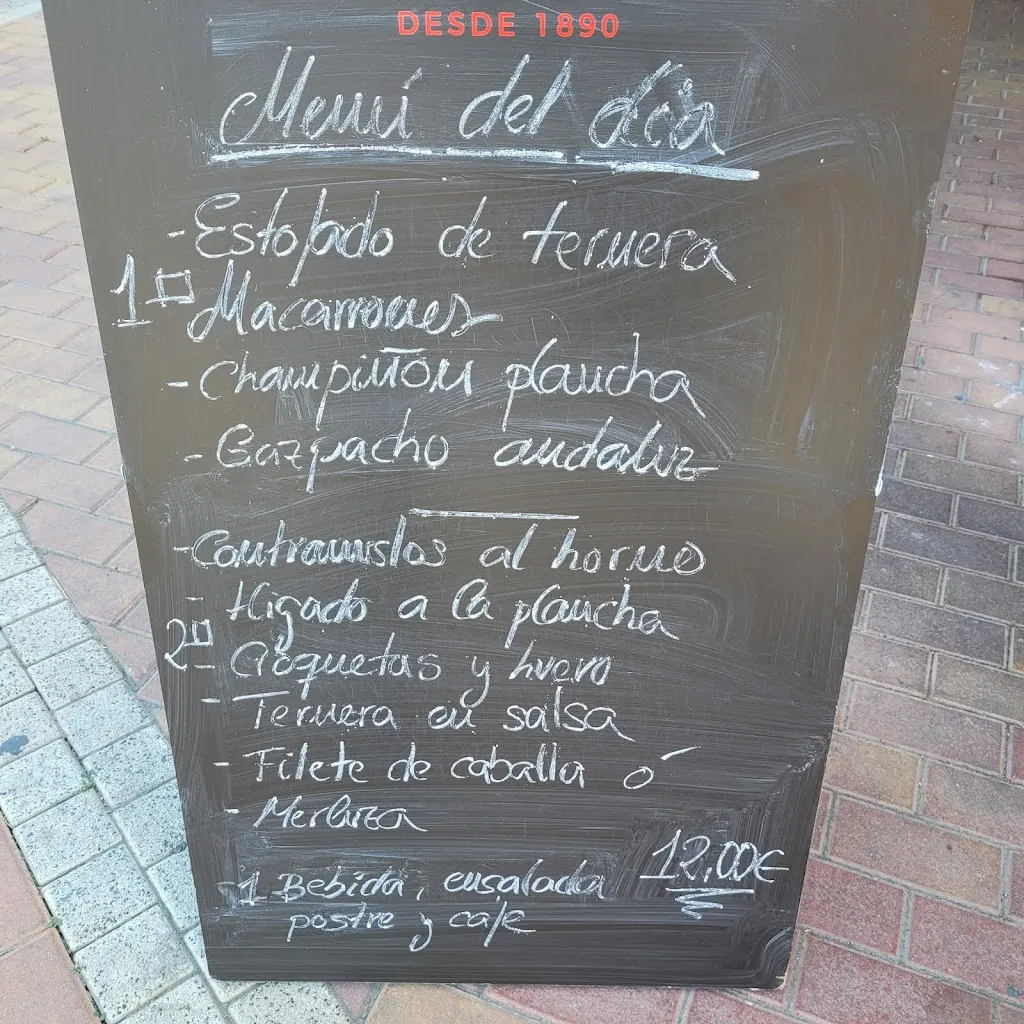 DESDE 1890
Menú del día
- Estofado de ternera
1º Macarrones
- Champiñón plancha
- Gazpacho andaluz
- Contramuslos al horno
- Higado a la plancha
2º - Croquetas y huevo
- Ternera en salsa
- Filete de caballa ó
- Merluza
12,00€
1 Bebida, ensalada
postre y cafe